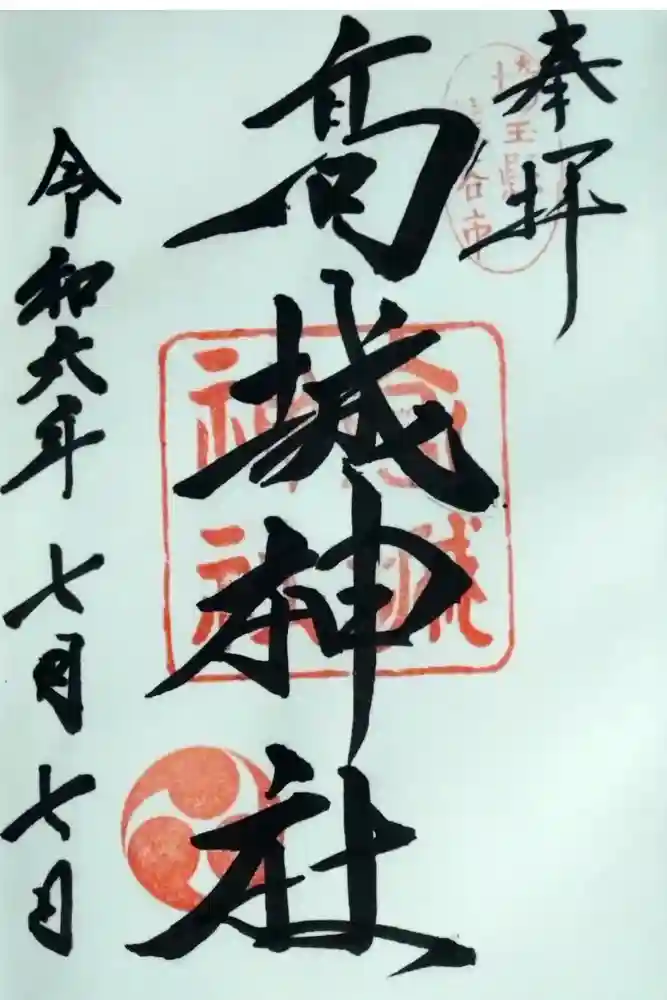 奉拝
埼玉縣
熊谷市
髙城神社
高城
神社
令和六年七月七日